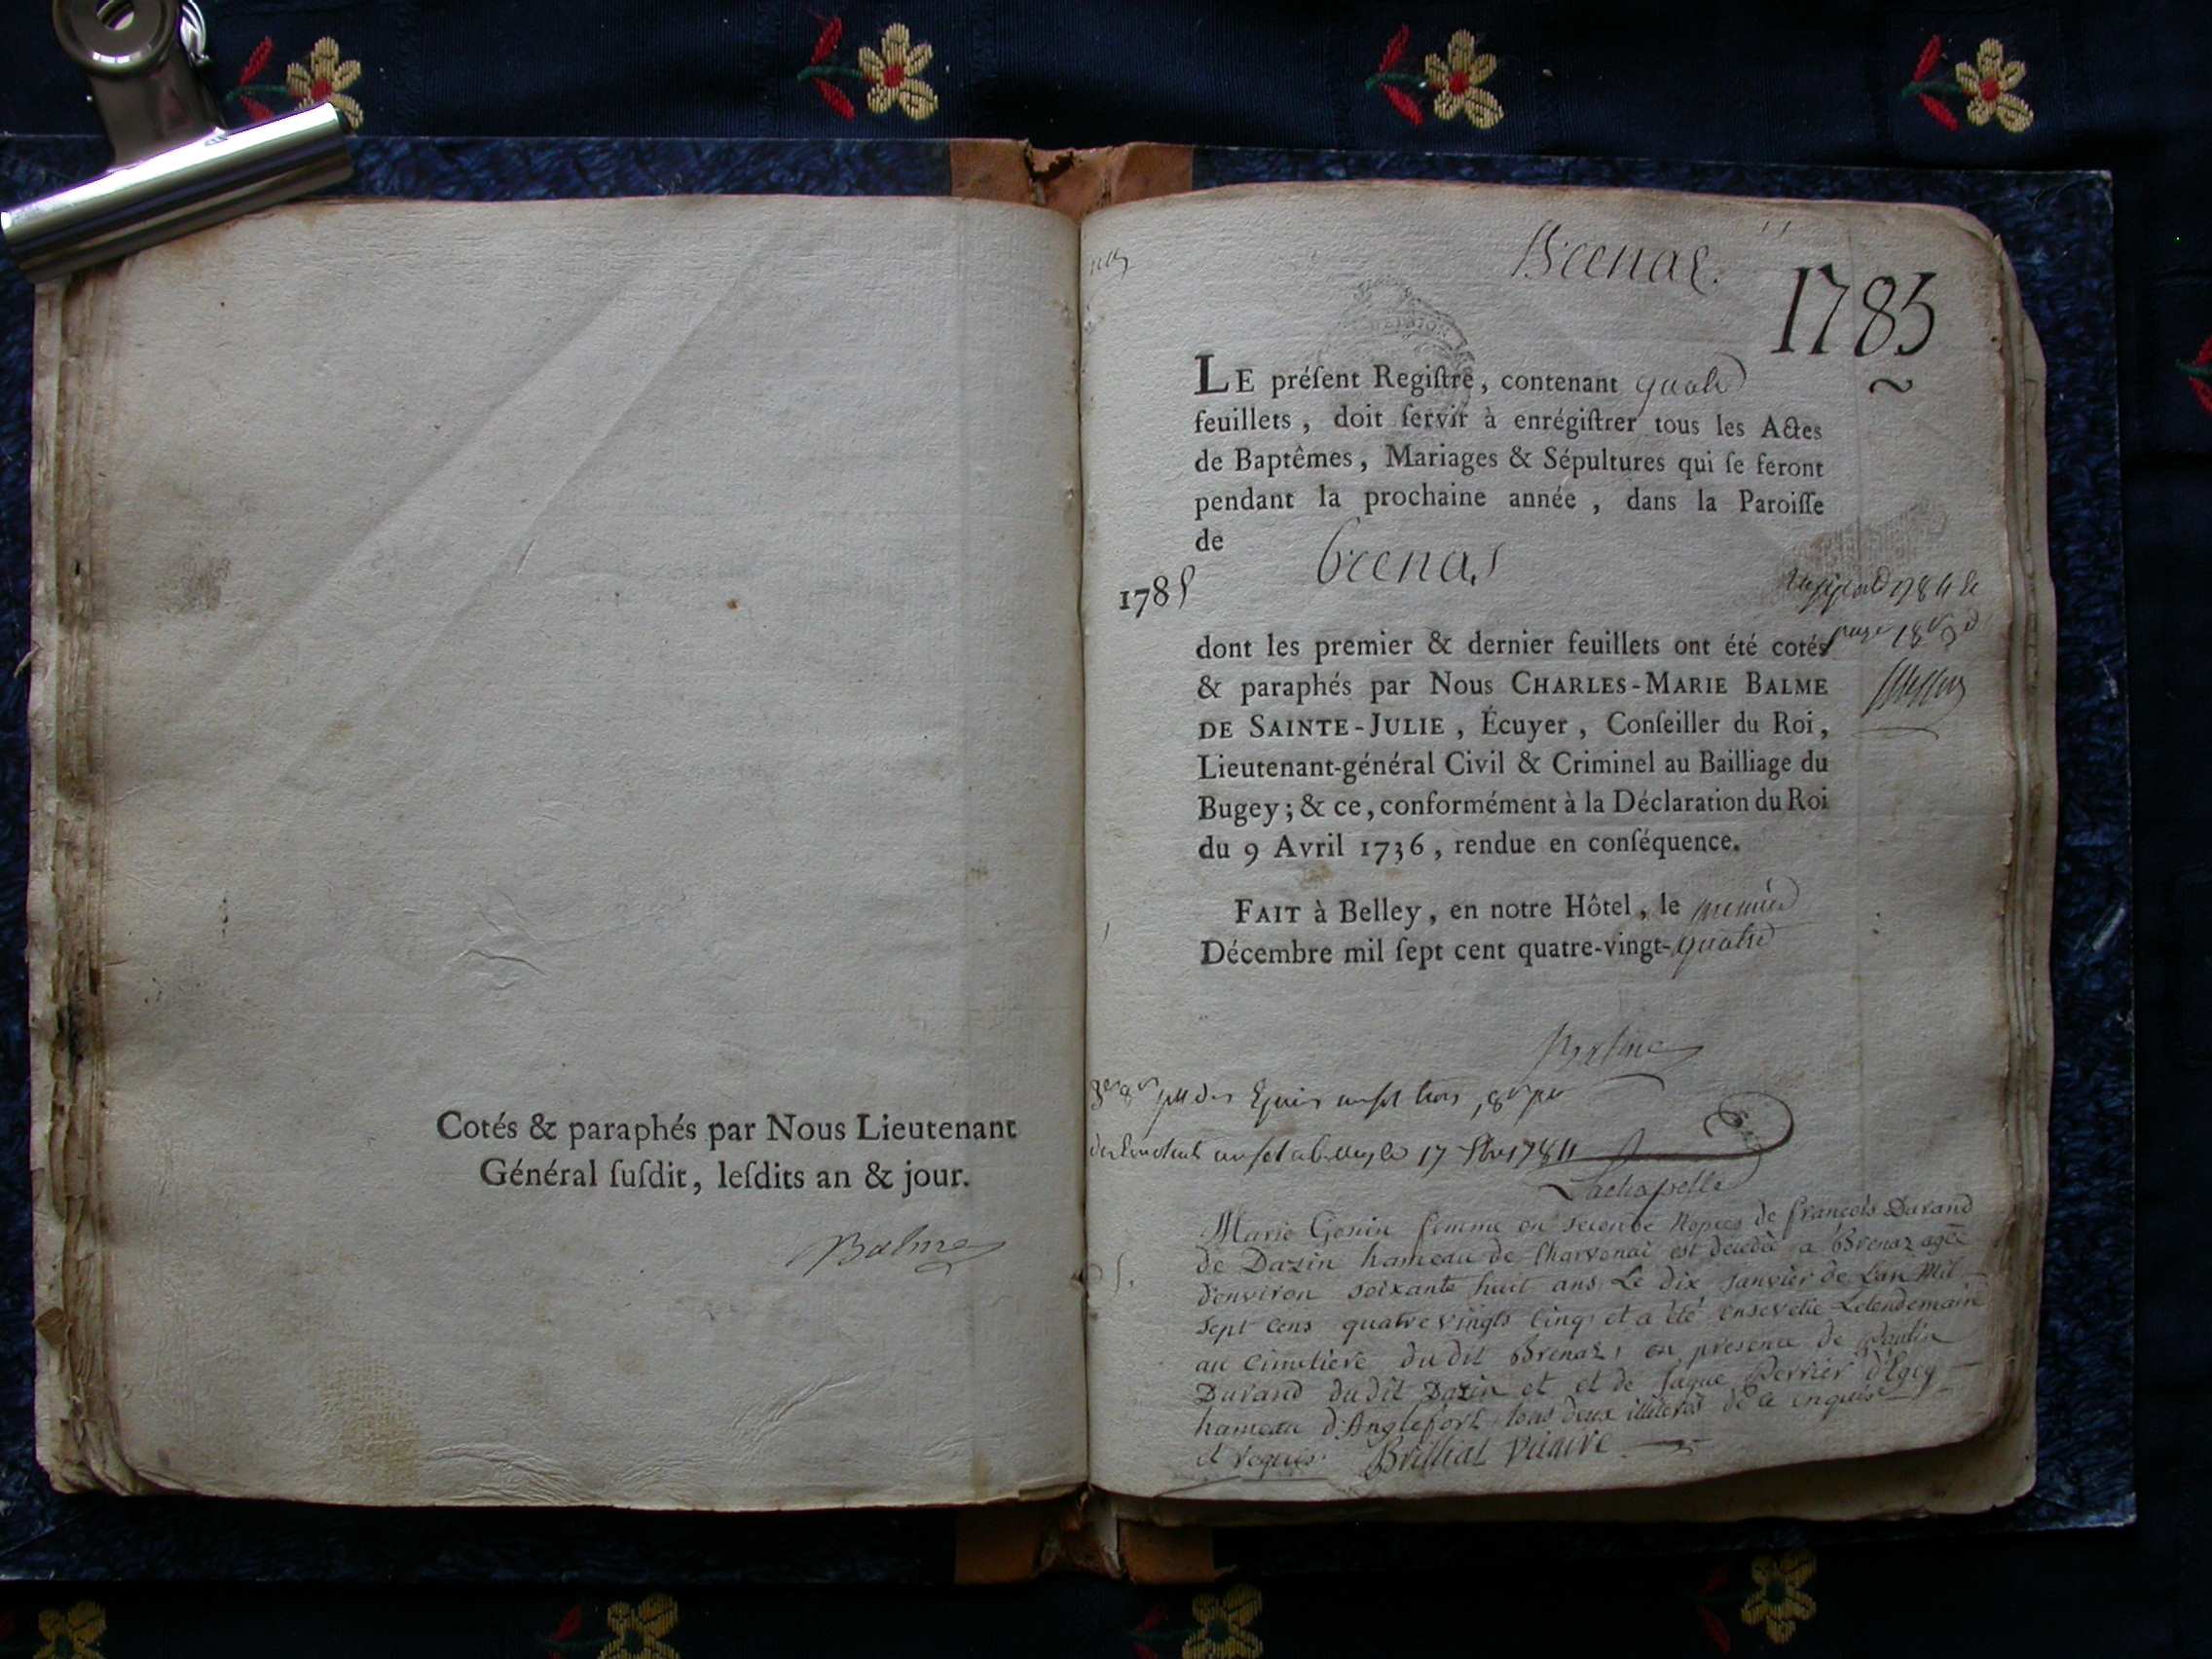 Cotés & paraphés par Nous Lieutenant
Général ſuſdit, leſdits an & jour.
Balme
Brenaz.
1785
LE préſent Regiſtre, contenant quatre
feuillets, doit ſervir à enrégiſtrer tous les Actes
de Baptêmes, Mariages & Sépultures qui ſe feront
pendant la prochaine année, dans la Paroiſſe
de brenas
1785
dont les premier & dernier feuillets ont été cotés
& paraphés par Nous CHARLES-MARIE BALME
DE SAINTE-JULIE, Écuyer, Conſeiller du Roi,
Lieutenant-général Civil & Criminel au Bailliage du
Bugey; & ce, conformément à la Déclaration du Roi
du 9 Avril 1736, rendue en conſéquence.
FAIT à Belley, en notre Hôtel, le premier
Décembre mil ſept cent quatre-vingt-quatre
Balme
17 1784
Lachapelle
Marie Genin femme en seconde Nopces de françois Durand
de Dazin hameau de Charvonai est décédée a Brenaz agée
d'environ soixante huit ans Le dix janvier de L'an Mil
sept cens quatre vingts Cinq et a été ensevelie Lelendemain
au Cimetiere du dit Brenaz, en presence de
Durand du dit Dazin et et de Perrier d'Egieg
hameau d'Anglefort tous deux illiterés de ce enquis
et requis. Brilliat Vicaire